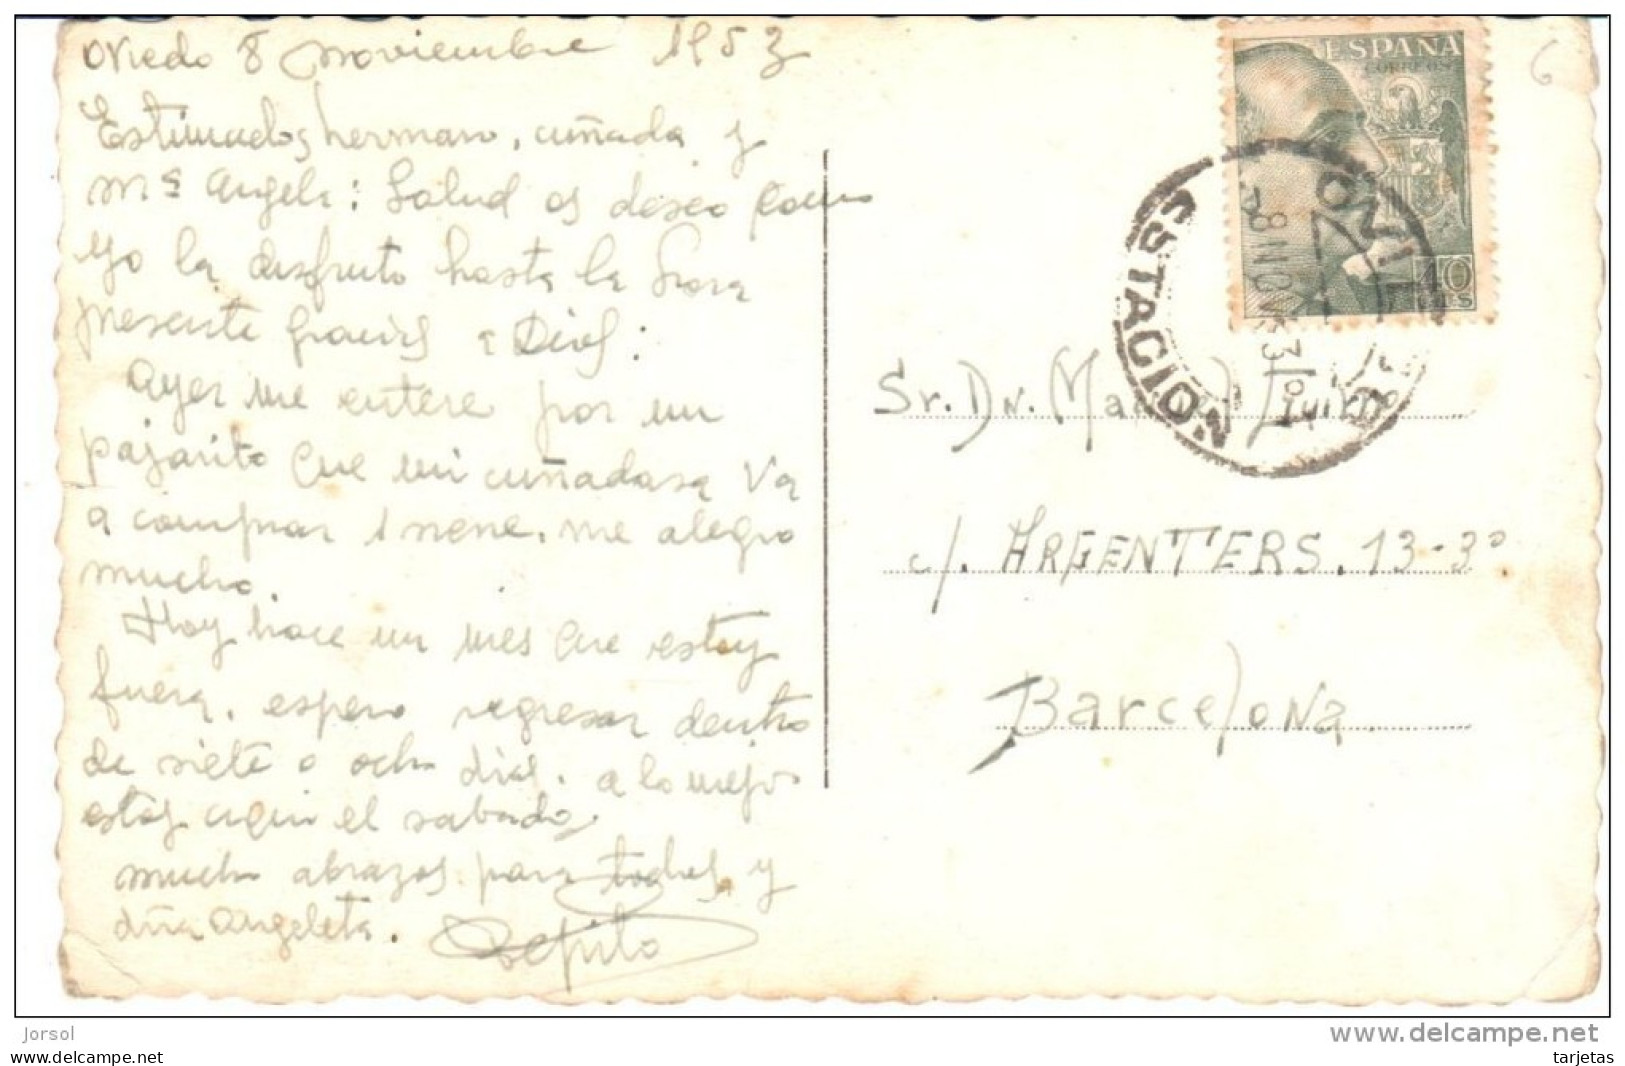 Oviedo 8 noviembre 1953
Estimados hermano, cuñada y
Mª Angela: Salud os deseo como
yo la disfruto hasta la hora
presente gracias a Dios:
Ayer me entere por un
pajarito que mi cuñadasa va
a comprar 1 nene. me alegro
mucho.
Hoy hace un mes que estoy
fuera, espero regresar dentro
de siete o ocho dias. a lo mejor
estoy aqui el sabado.
mucho abrazos para todos y
dña angeleta. Pepito
ESPAÑA
CORREOS
40
CTS
ESTACION
8 NOV 53
6
Sr. Dn.
c/. ARGENTERS. 13-3º
Barcelona
Jorsol
www.delcampe.net
tarjetas